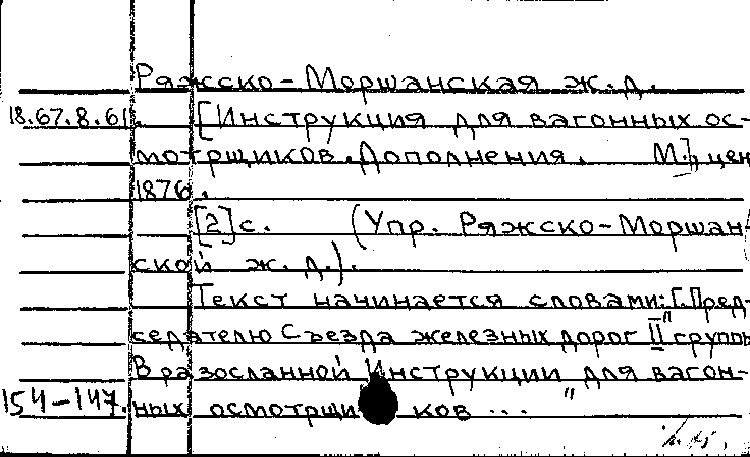 Ряжско-Моршанская ж.д.
18.67.8.61. [Инструкция для вагонных ос-
мотрщиков. Дополнения. М.], цен
1876.
[2] с. (Упр. Ряжско-Моршан-
ской ж.д.).
Текст начинается словами: Г. Пред-
седателю Съезда железных дорог II группы
В разосланной Инструкции "для вагон-
154-147. ных осмотрщиков..."